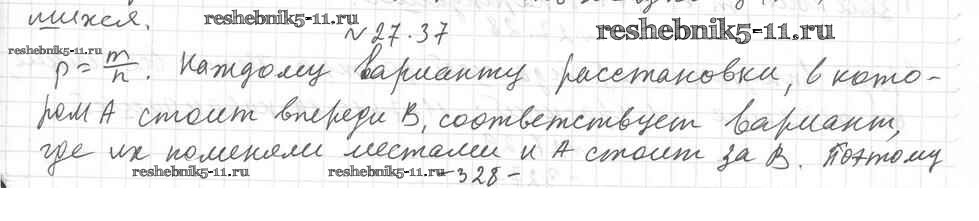 шихся.
reshebnik5-11.ru
№27.37
reshebnik5-11.ru
reshebnik5-11.ru
p = m/n. Каждому варианту расстановки, в кото-
ром А стоит впереди В, соответствует вариант,
где их поменяли местами и А стоит за В. Поэтому
reshebnik5-11.ru
reshebnik5-11.ru
-328-